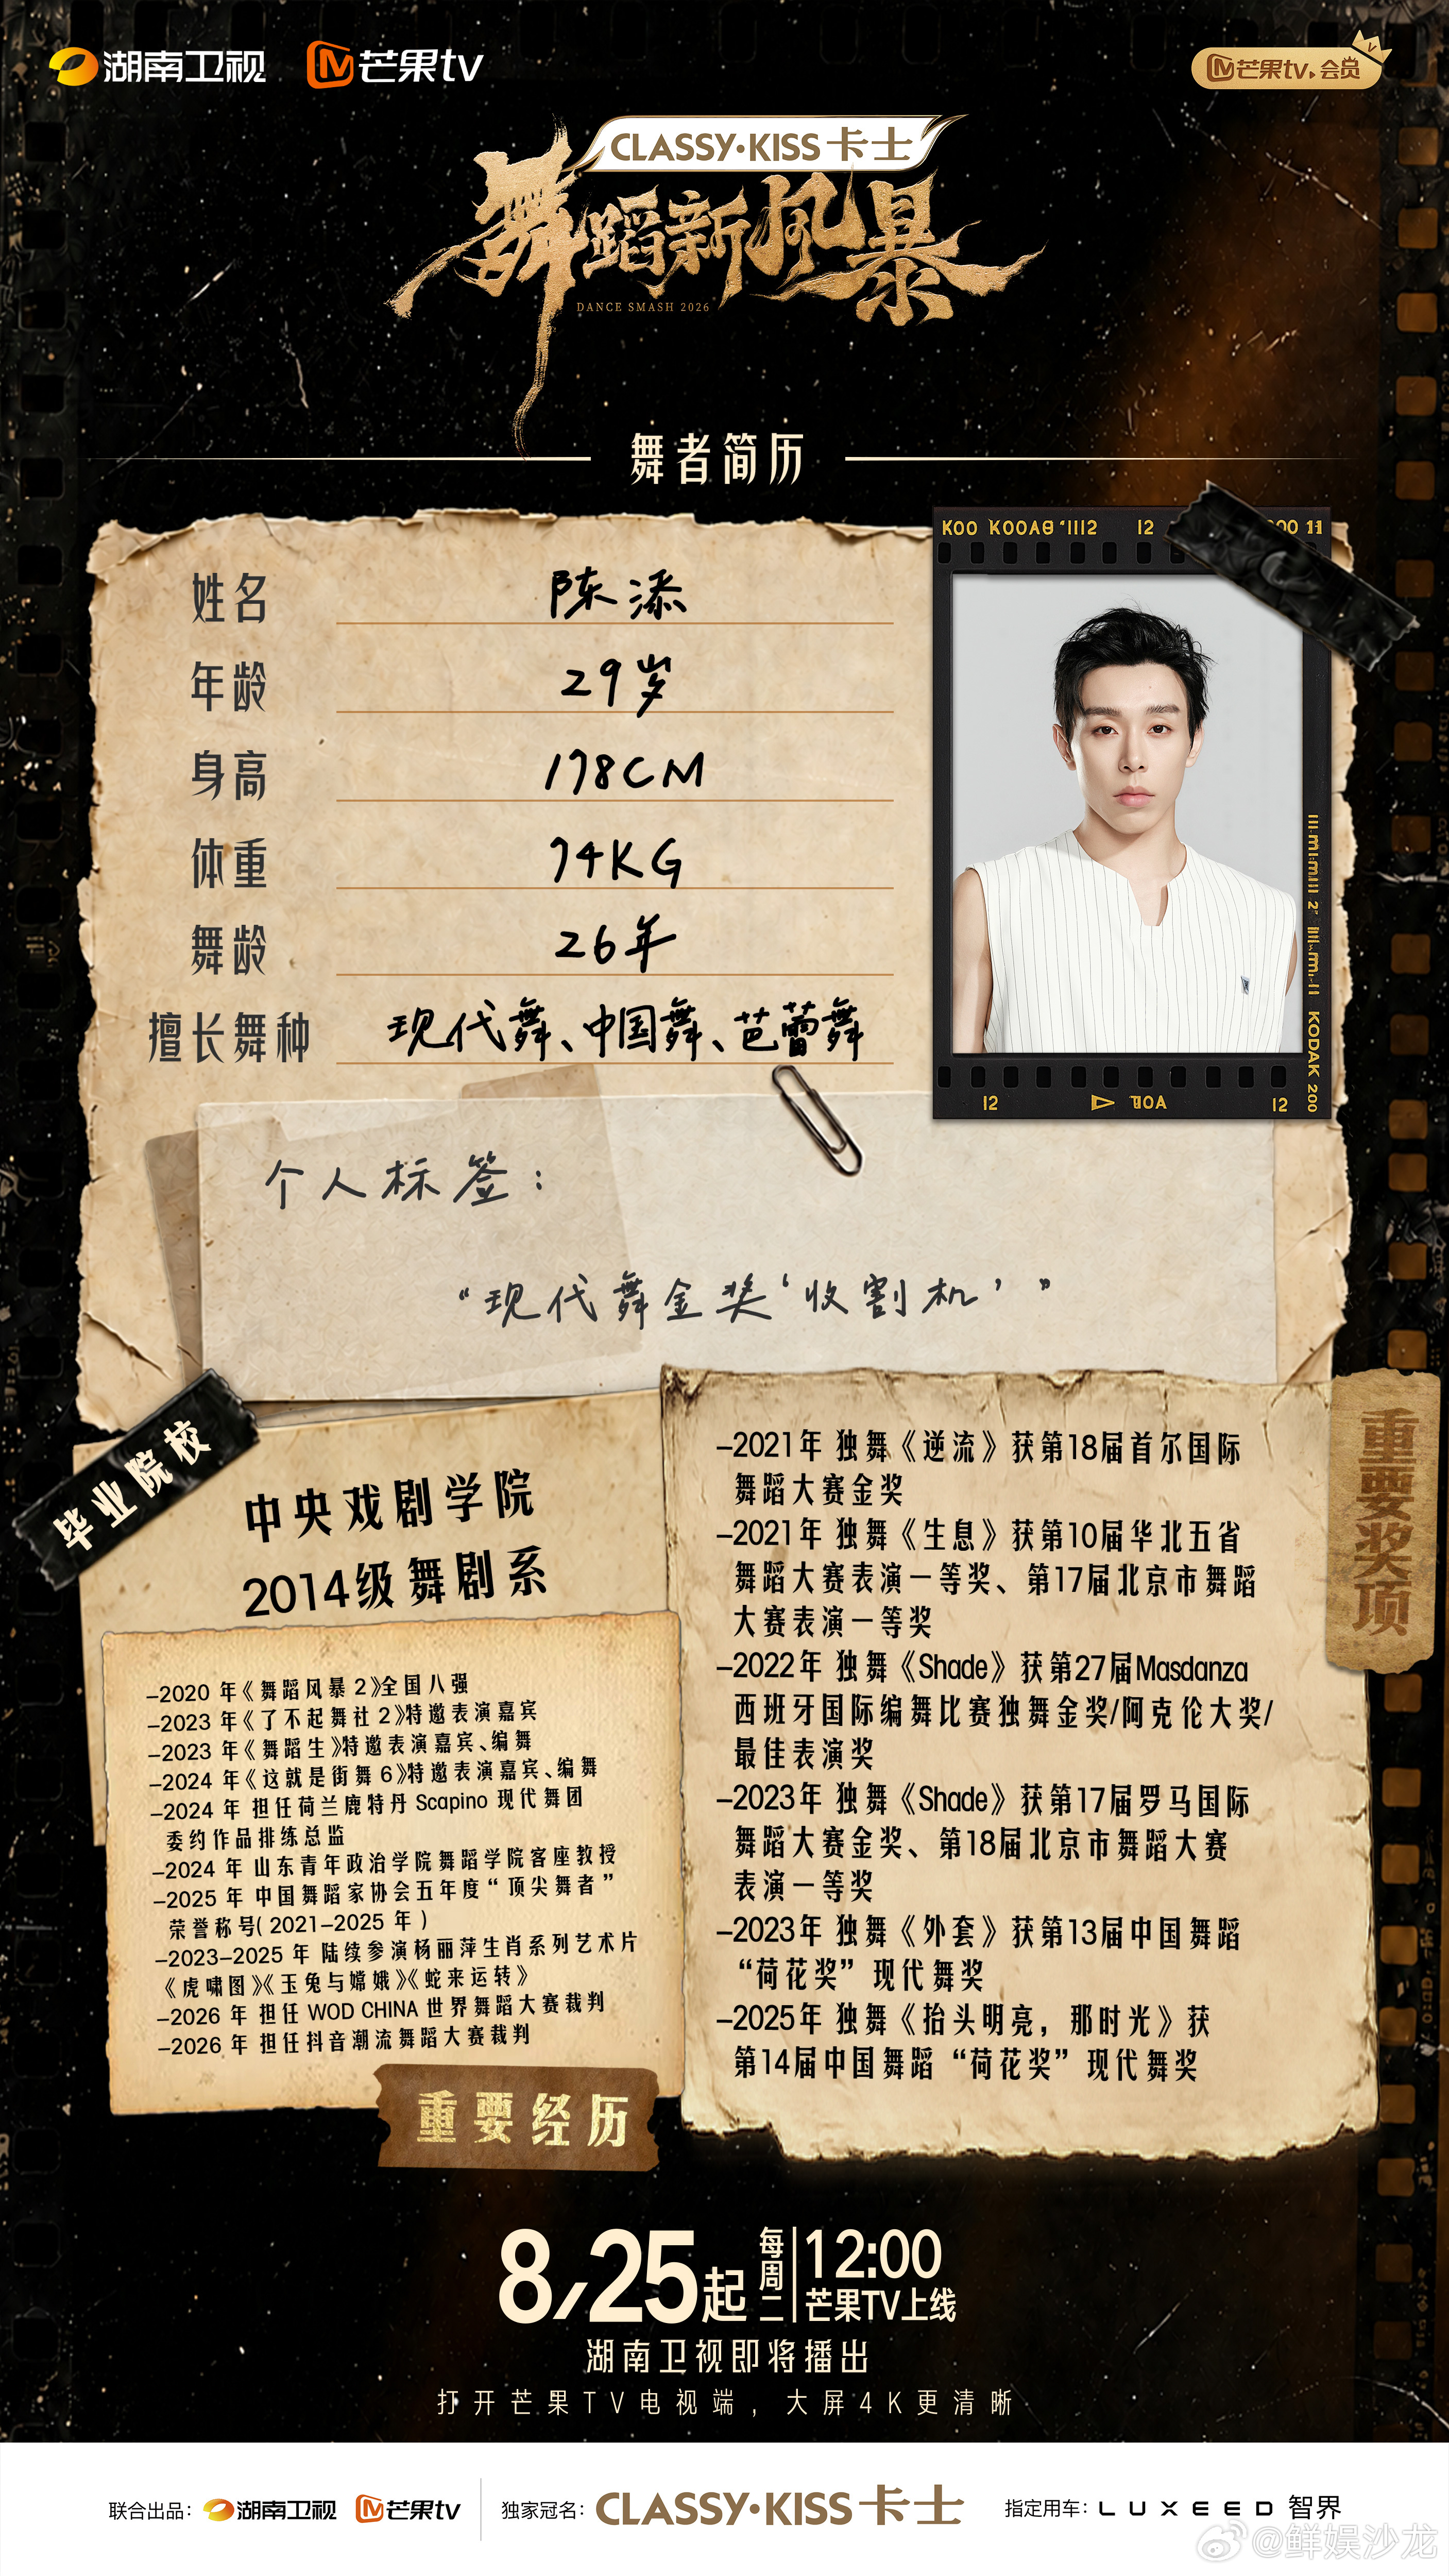 湖南卫视 芒果tv
芒果tv 会员
CLASSY·KISS 卡士
舞蹈新风暴
DANCE SMASH 2026
舞者简历
姓名 陈添
年龄 29岁
身高 178CM
体重 74KG
舞龄 26年
擅长舞种 现代舞、中国舞、芭蕾舞
12
KODAK 200
12
12
个人标签：
“现代舞金奖‘收割机’”
毕业院校
中央戏剧学院
2014级舞剧系
–2020 年《舞蹈风暴 2》全国八强
–2023 年《了不起舞社 2》特邀表演嘉宾
–2023 年《舞蹈生》特邀表演嘉宾、编舞
–2024 年《这就是街舞 6》特邀表演嘉宾、编舞
–2024 年 担任荷兰鹿特丹 Scapino 现代舞团
委约作品排练总监
–2024 年 山东青年政治学院舞蹈学院客座教授
–2025 年 中国舞蹈家协会五年度“顶尖舞者”
荣誉称号(2021–2025 年)
–2023–2025 年 陆续参演杨丽萍生肖系列艺术片
《虎啸图》《玉兔与嫦娥》《蛇来运转》
–2026 年 担任 WOD CHINA 世界舞蹈大赛裁判
–2026 年 担任抖音潮流舞蹈大赛裁判
重要经历
重要奖项
–2021年 独舞《逆流》获第18届首尔国际
舞蹈大赛金奖
–2021年 独舞《生息》获第10届华北五省
舞蹈大赛表演一等奖、第17届北京市舞蹈
大赛表演一等奖
–2022年 独舞《Shade》获第27届Masdanza
西班牙国际编舞比赛独舞金奖/阿克伦大奖/
最佳表演奖
–2023年 独舞《Shade》获第17届罗马国际
舞蹈大赛金奖、第18届北京市舞蹈大赛
表演一等奖
–2023年 独舞《外套》获第13届中国舞蹈
“荷花奖”现代舞奖
–2025年 独舞《抬头明亮，那时光》获
第14届中国舞蹈“荷花奖”现代舞奖
8/25起 每周二 12:00
芒果TV上线
湖南卫视即将播出
打开芒果TV电视端，大屏4K更清晰
联合出品： 湖南卫视 芒果tv 独家冠名： CLASSY·KISS 卡士 指定用车： LUXEED 智界
@鲜娱沙龙